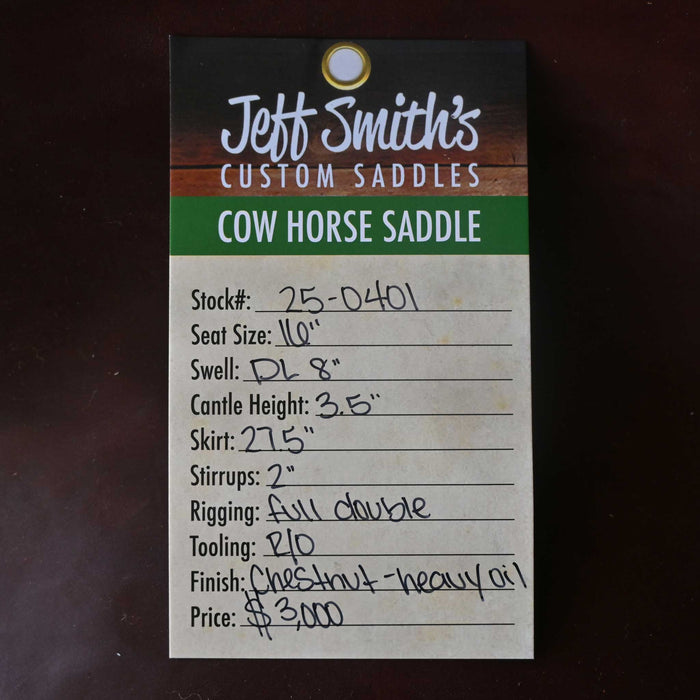 Jeff Smith's
CUSTOM SADDLES
COW HORSE SADDLE
Stock#: 25-0401
Seat Size: 16"
Swell: DL 8"
Cantle Height: 3.5"
Skirt: 27.5"
Stirrups: 2"
Rigging: full double
Tooling: R/O
Finish: Chestnut - heavy oil
Price: $3,000